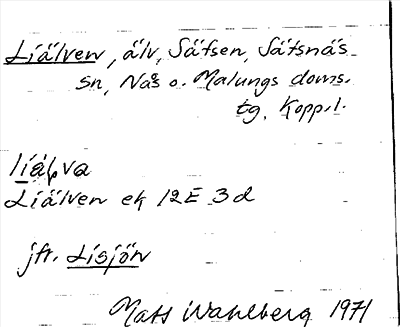 Liälven, älv, Säfsen, Säfsnäs
sn, Nås o. Malungs doms.
tg, Kopp.l.
Liälven ek 12E 3d
jfr. Lisjön
Mats Wahlberg 1971